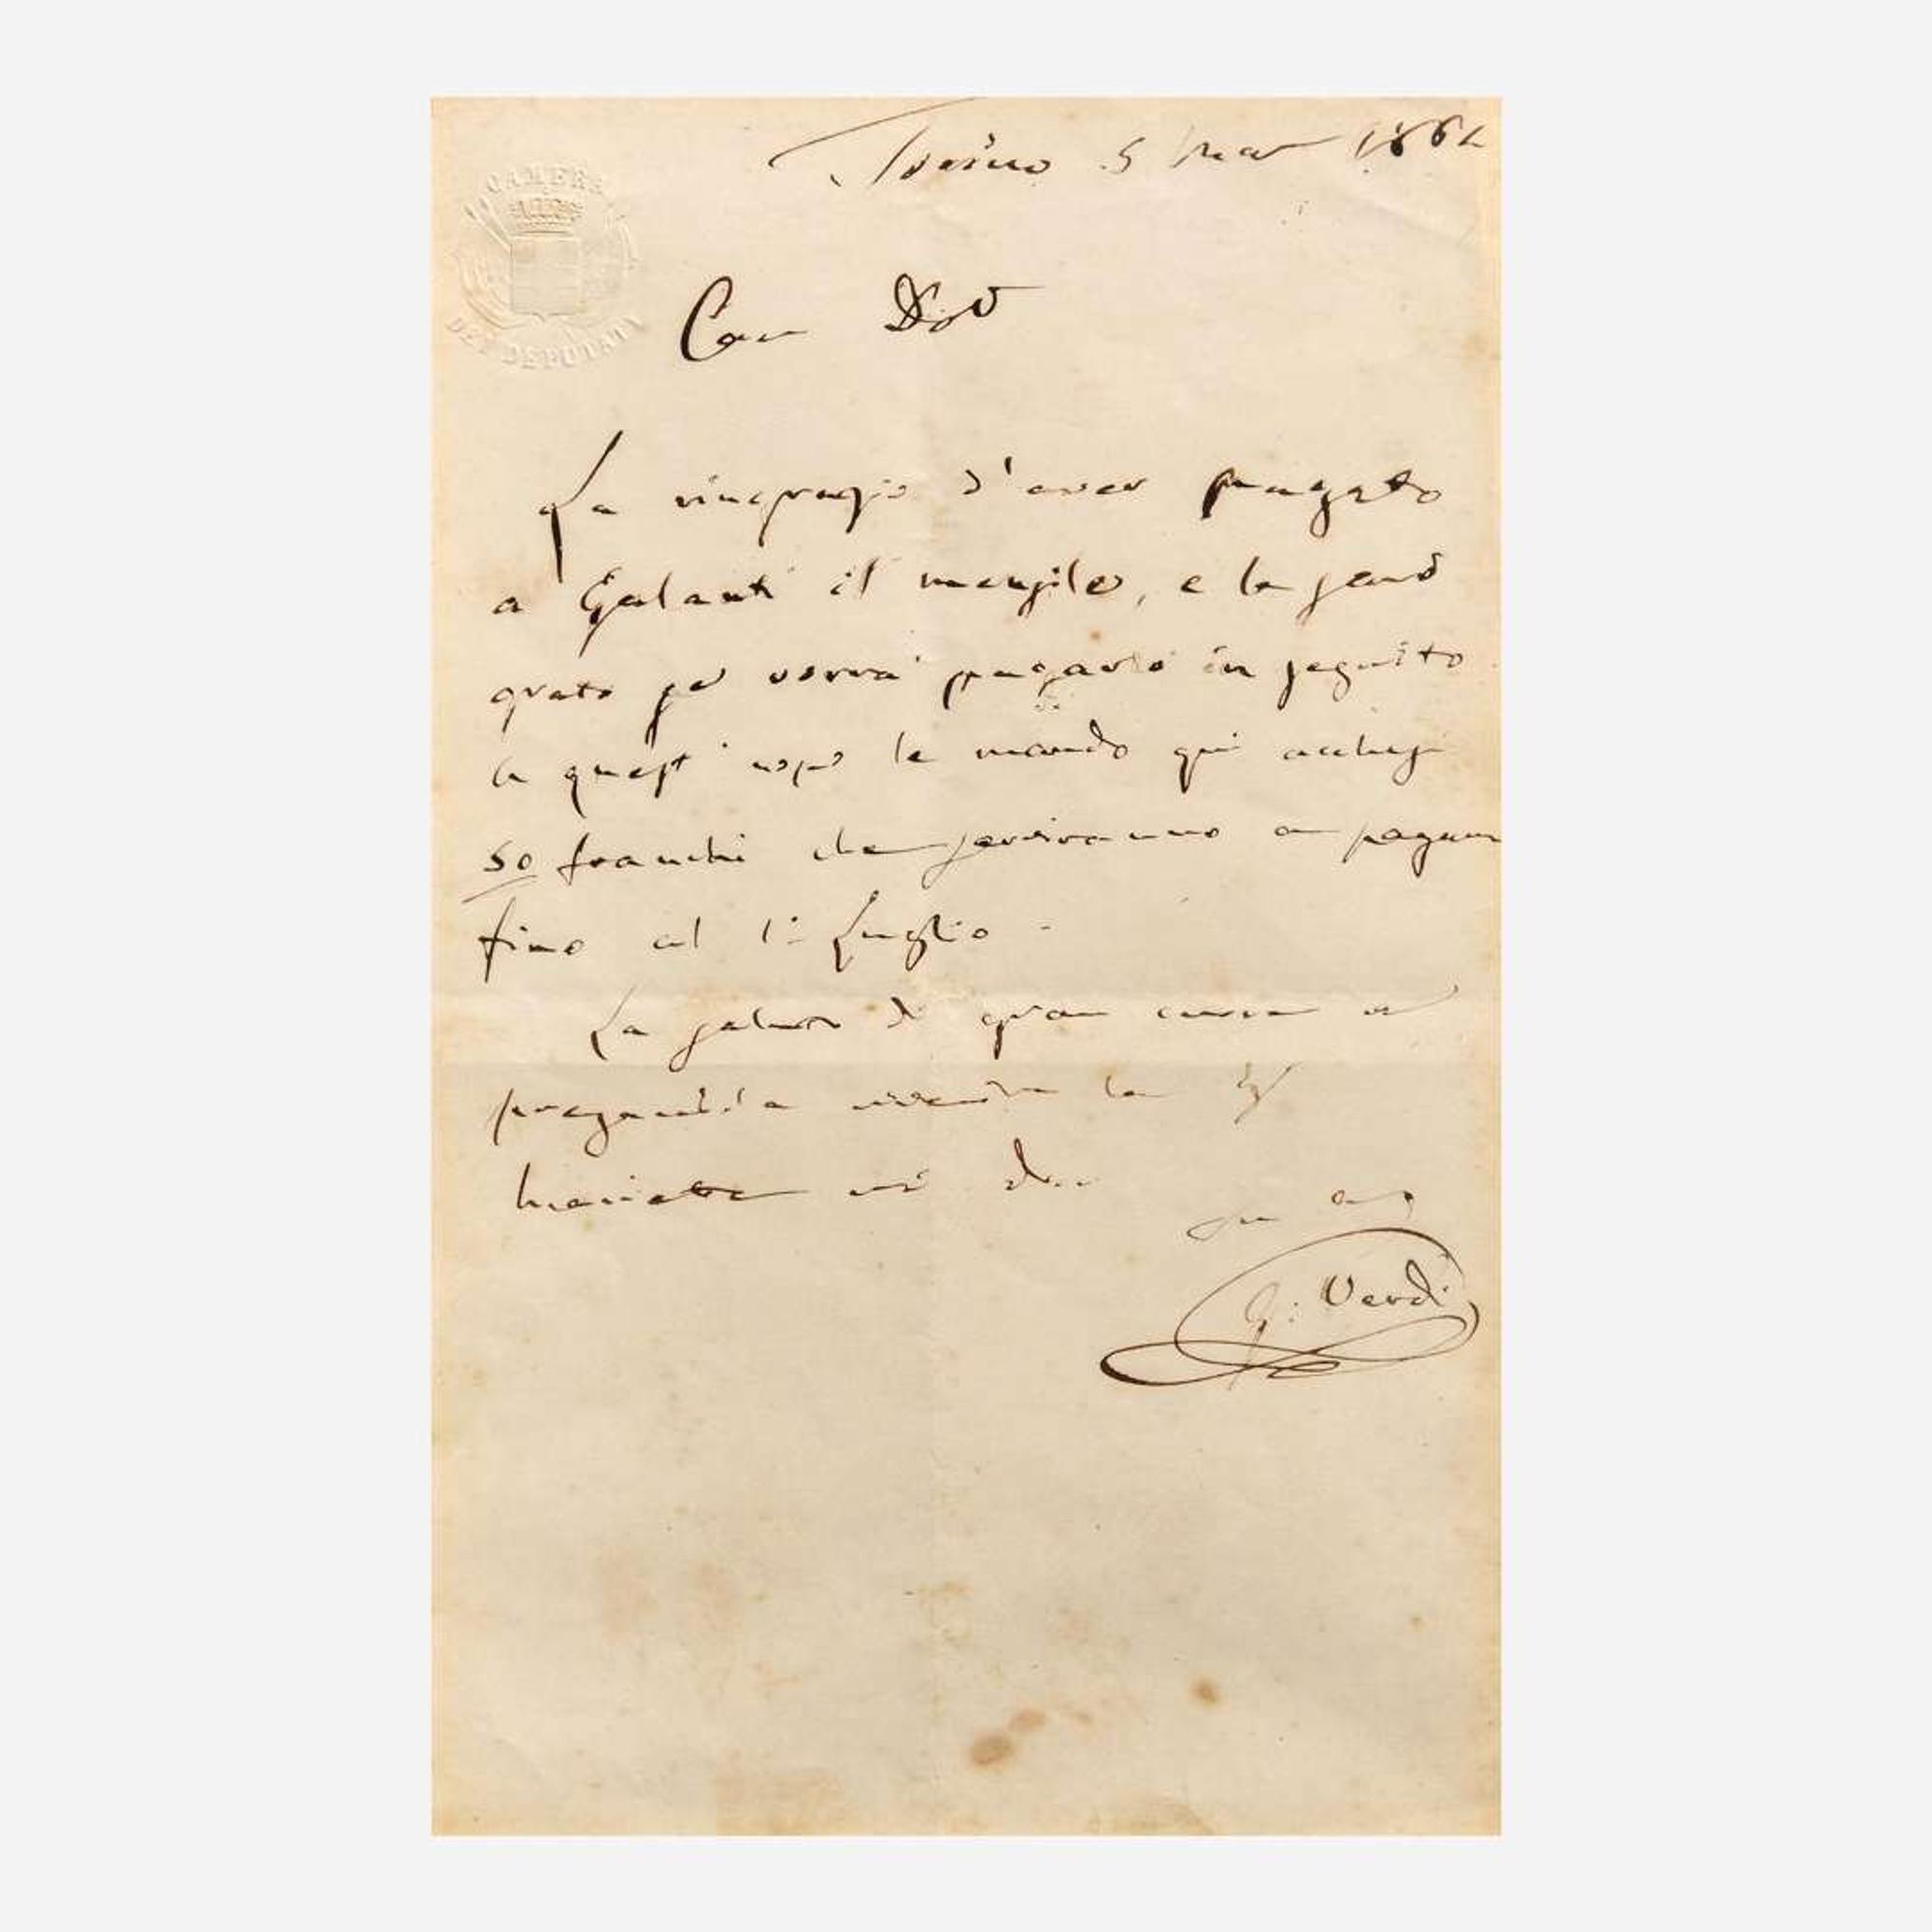 CAMERA
DEI DEPUTATI
Torino 5 1862
Caro
La ringrazio d'aver pagato
a Galanti il mensile, e le sarò
grato se vorrà pagarlo in seguito
a quest' uopo le mando qui acclusi
50 franchi che serviranno a pagare
fino al 1º Luglio.
La saluto di gran cuore e
pregandola la
mi dico
suo
G. Verdi